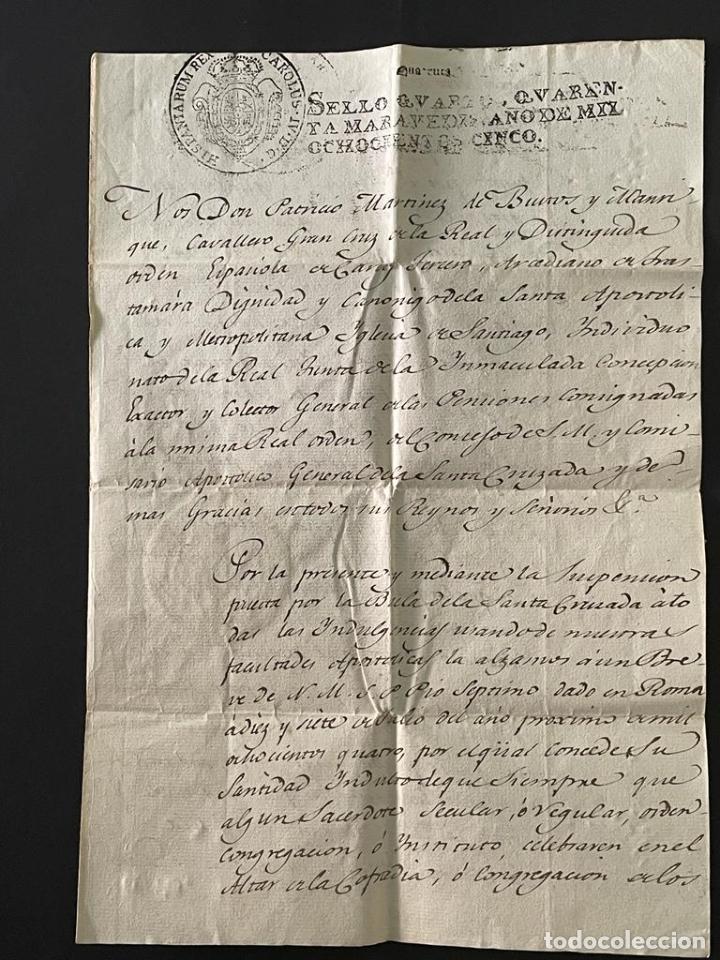 HISPANIARUM REX CAROLUS·IV·D·G·
Quarenta
SELLO QVARTO, QVAREN-
TA MARAVEDIS, AÑO DE MIL
OCHOCIENTOS CINCO.
Nos Don Patricio Martinez de Bustos, y Manri
que, Cavallero Gran Cruz de la Real y Distinguida
orden Española de Carlos Tercero, Arcediano de Tras
tamara Dignidad y Canonigo de la Santa Apostoli
ca y Metropolitana Yglesia de Santiago, Individuo
nato de la Real Junta de la Inmaculada Concepcion
Exactor y Colector General de las Pensiones Consignadas
à la misma Real orden, del Consejo de S. M. y Comi
sario Apostolico General de la Santa Cruzada y de
mas Gracias en todos sus Reynos y Señorios &.ª
Por la presente y mediante la Suspension
puesta por la Bula de la Santa Cruzada à to
das las Indulgencias usando de nuestras
facultades Apostolicas la alzamos à un Bre
ve de N. M. S. P. Pio Septimo dado en Roma
à diez y siete de Julio del año proximo de mil
ochocientos quatro, por el qual concede Su
Santidad Indulto de que Siempre que
algun Sacerdote Secular, ó Regular, orden
congregacion, ó Instituto celebraren en el
Altar de la Cofradia, ó Congregacion de los
todocoleccion.net